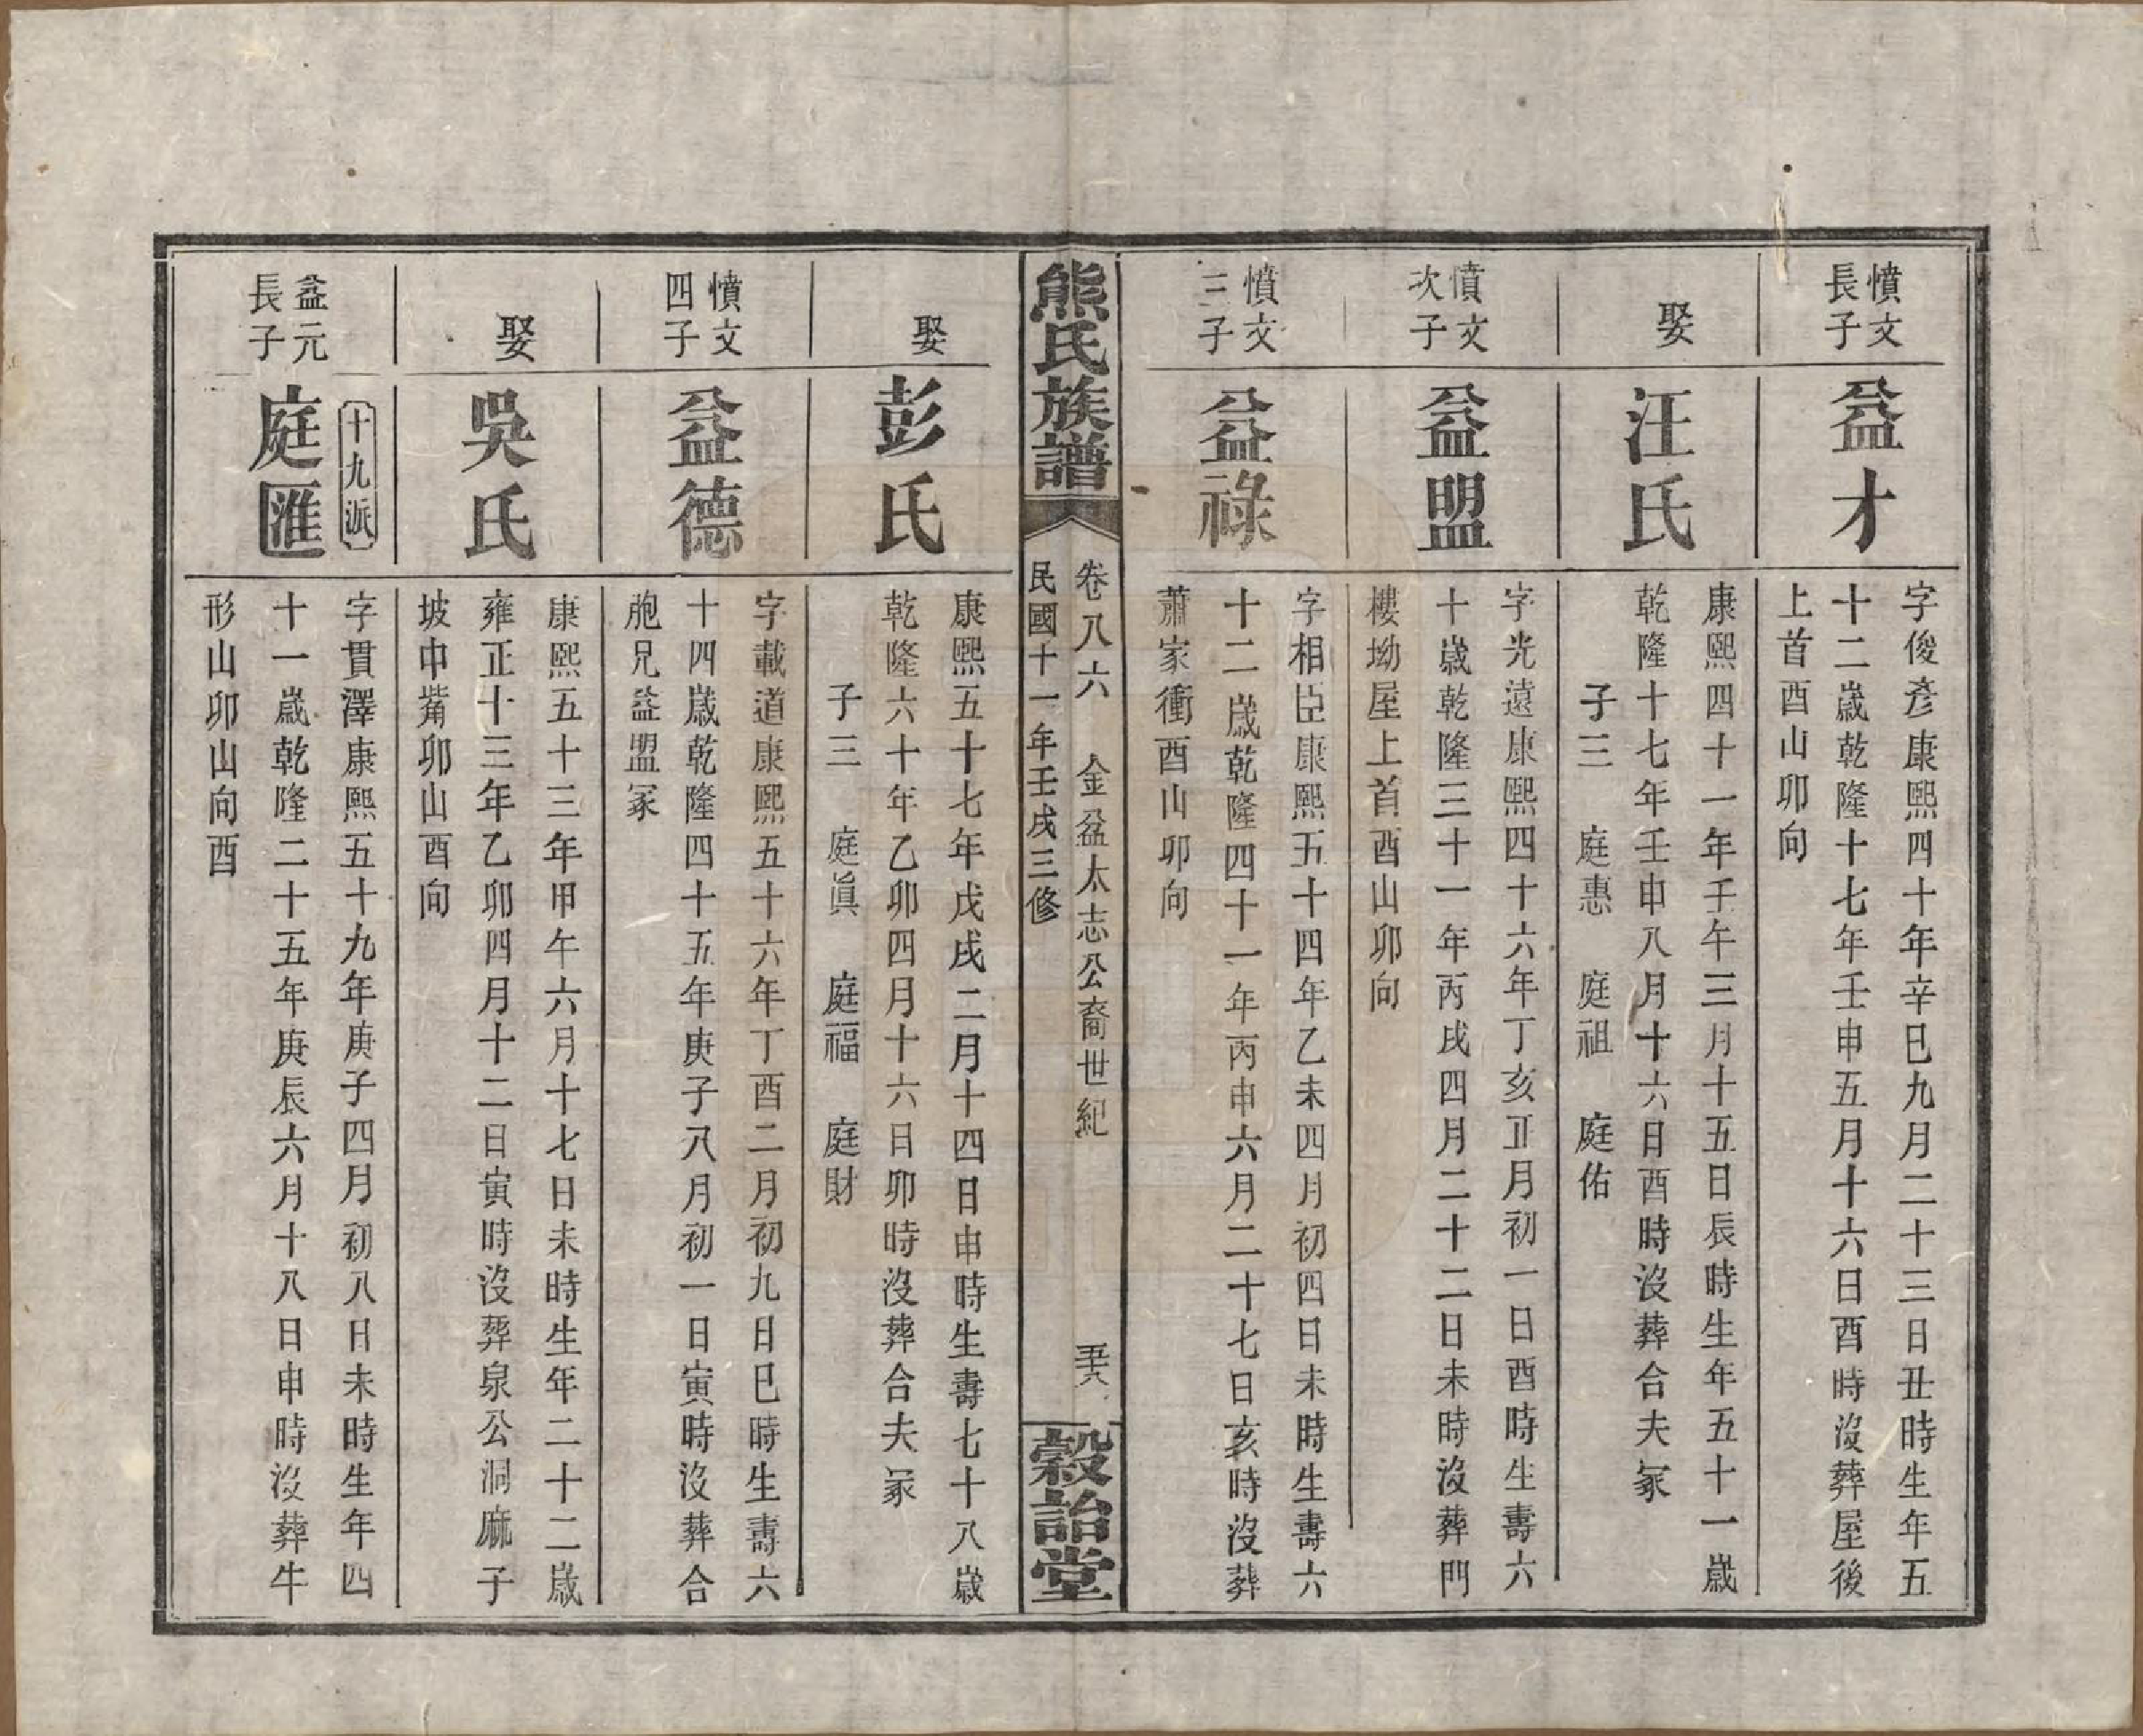 憤文
長子
益才
字俊彥康熙四十年辛巳九月二十三日丑時生年五
十二歲乾隆十七年壬申五月十六日酉時沒葬屋後
上首酉山卯向
娶
汪氏
康熙四十一年壬午三月十五日辰時生年五十一歲
乾隆十七年壬申八月十六日酉時沒葬合夫冢
子三 庭惠 庭祖 庭佑
憤文
次子
益盟
字光遠康熙四十六年丁亥正月初一日酉時生壽六
十歲乾隆三十一年丙戌四月二十二日未時沒葬門
樓坳屋上首酉山卯向
憤文
三子
益祿
字相臣康熙五十四年乙未四月初四日未時生壽六
十二歲乾隆四十一年丙申六月二十七日亥時沒葬
蕭家衝酉山卯向
熊氏族譜
卷八六 金盆太志公裔世紀 五六
民國十一年壬戌三修
穀詒堂
娶
彭氏
康熙五十七年戊戌二月十四日申時生壽七十八歲
乾隆六十年乙卯四月十六日卯時沒葬合夫冢
子三 庭眞 庭福 庭財
憤文
四子
益德
字載道康熙五十六年丁酉二月初九日巳時生壽六
十四歲乾隆四十五年庚子八月初一日寅時沒葬合
胞兄益盟冢
娶
吳氏
康熙五十三年甲午六月十七日未時生年二十二歲
雍正十三年乙卯四月十二日寅時沒葬泉公洞麻子
坡中觜卯山酉向
益元
長子
十九派
庭匯
字貫澤康熙五十九年庚子四月初八日未時生年四
十一歲乾隆二十五年庚辰六月十八日申時沒葬牛
形山卯山向酉